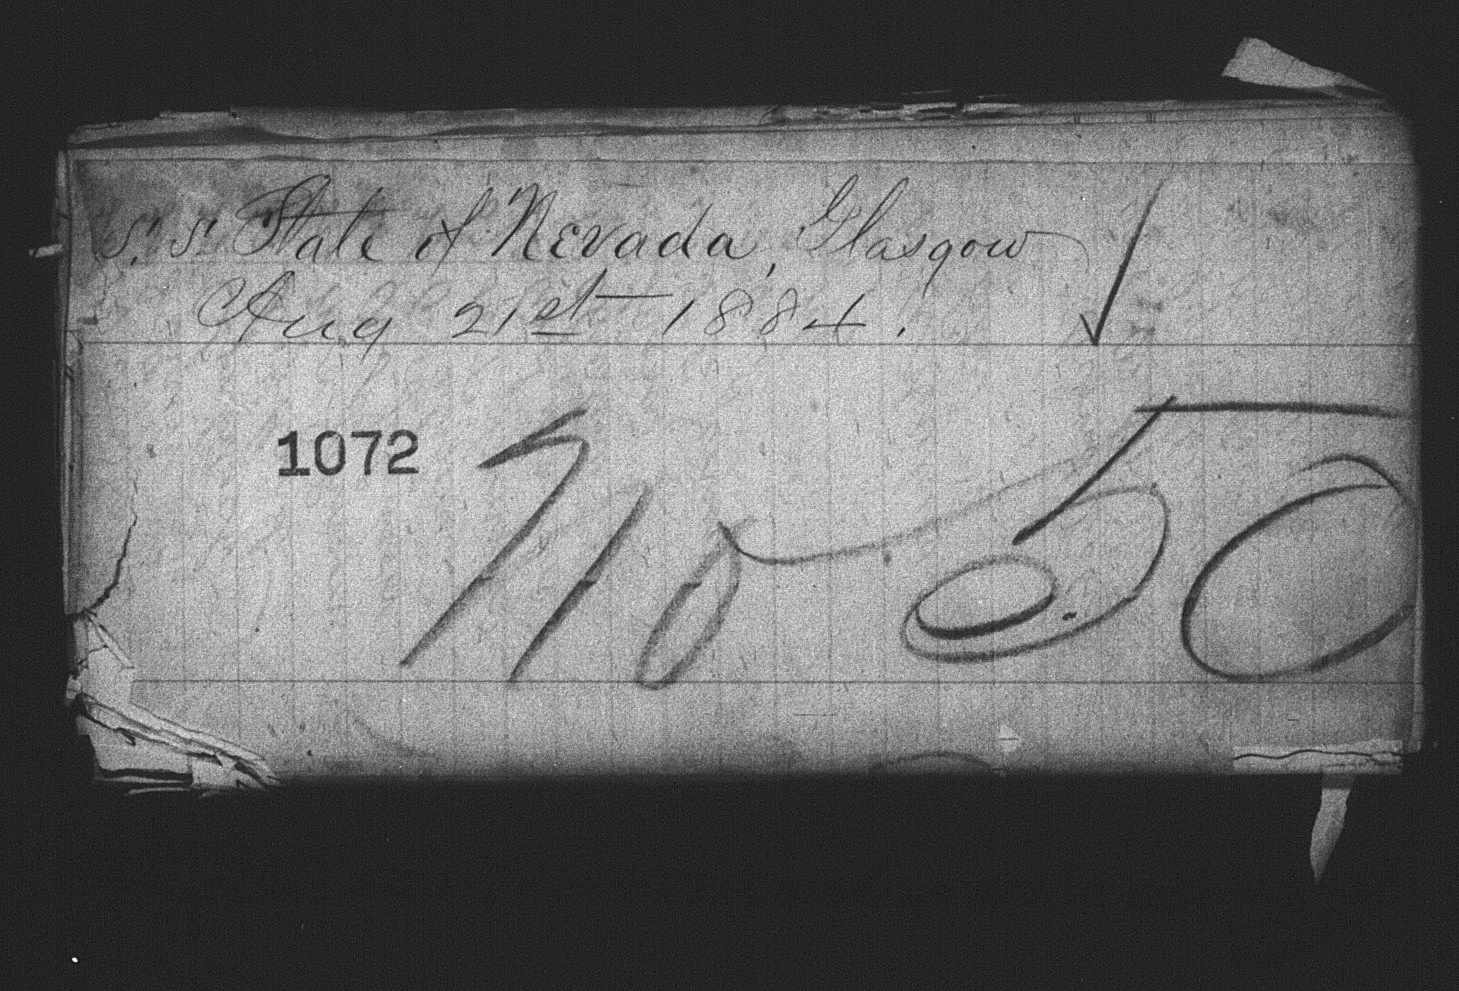 S.S. State of Nevada, Glasgow
Aug 21st 1884.
1072
50